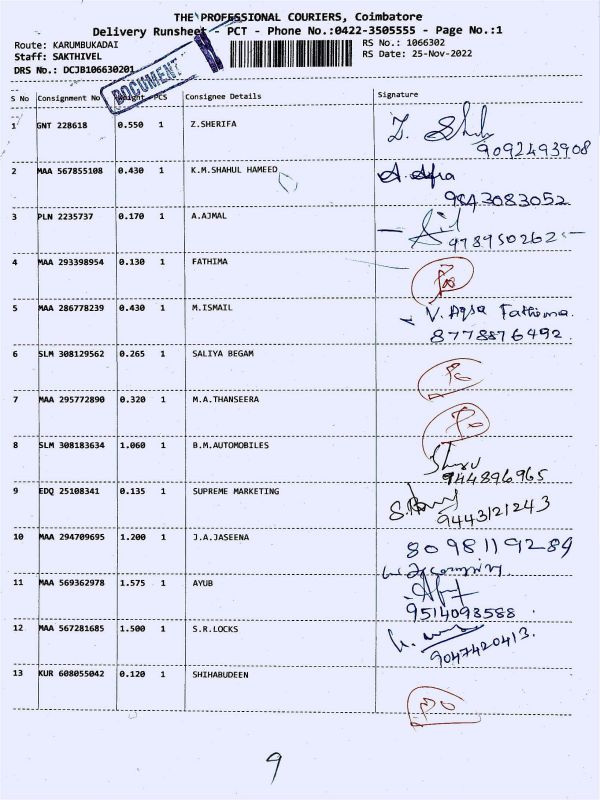 THE PROFESSIONAL COURIERS, Coimbatore
Delivery Runsheet - PCT - Phone No.:0422-3505555 - Page No.:1
Route: KARUMBUKADAI
RS No.: 1066302
Staff: SAKTHIVEL
RS Date: 25-Nov-2022
DRS No.: DCJB106630201
DOCUMENT
S No Consignment No Weight PCS Consignee Details Signature
1 GNT 228618 0.550 1 Z.SHERIFA
9092493908
2 MAA 567855108 0.430 1 K.M.SHAHUL HAMEED
9843083052
3 PLN 2235737 0.170 1 A.AJMAL
4 MAA 293398954 0.130 1 FATHIMA
5 MAA 286778239 0.430 1 M.ISMAIL V. Aqsa Fathima.
8778876492.
6 SLM 308129562 0.265 1 SALIYA BEGAM
7 MAA 295772890 0.320 1 M.A.THANSEERA
8 SLM 308183634 1.060 1 B.M.AUTOMOBILES
944896965
9 EDQ 25108341 0.135 1 SUPREME MARKETING
9443121243
10 MAA 294709695 1.200 1 J.A.JASEENA 8098119284
11 MAA 569362978 1.575 1 AYUB
9514093588.
12 MAA 567281685 1.500 1 S.R.LOCKS
9047420413.
13 KUR 608055042 0.120 1 SHIHABUDEEN
9